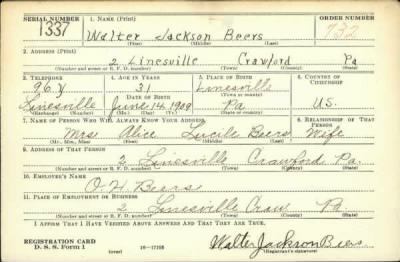 SERIAL NUMBER 1. NAME (Print) ORDER NUMBER
1337 Walter Jackson Beers 732
(First) (Middle) (Last)
2. ADDRESS (Print)
2 Linesville Crawford Pa
(Number and street or R. F. D. number) (Town) (County) (State)
3. TELEPHONE 4. AGE IN YEARS 5. PLACE OF BIRTH 6. COUNTRY OF CITIZENSHIP
96Y 31 Linesville
DATE OF BIRTH (Town or county)
Linesville June 14 1909 Pa U.S.
(Exchange) (Number) (Mo.) (Day) (Yr.) (State or country)
7. NAME OF PERSON WHO WILL ALWAYS KNOW YOUR ADDRESS 8. RELATIONSHIP OF THAT PERSON
Mrs Alice Lucile Beers Wife
(Mr., Mrs., Miss) (First) (Middle) (Last)
9. ADDRESS OF THAT PERSON
2 Linesville Crawford Pa.
(Number and street or R. F. D. number) (Town) (County) (State)
10. EMPLOYER'S NAME
O. H. Beers
11. PLACE OF EMPLOYMENT OR BUSINESS
2 Linesville Craw Pa.
(Number and street or R. F. D. number) (Town) (County) (State)
I AFFIRM THAT I HAVE VERIFIED ABOVE ANSWERS AND THAT THEY ARE TRUE.
REGISTRATION CARD Walter Jackson Beers
D. S. S. Form 1 (over) 16—17105 (Registrant's signature)